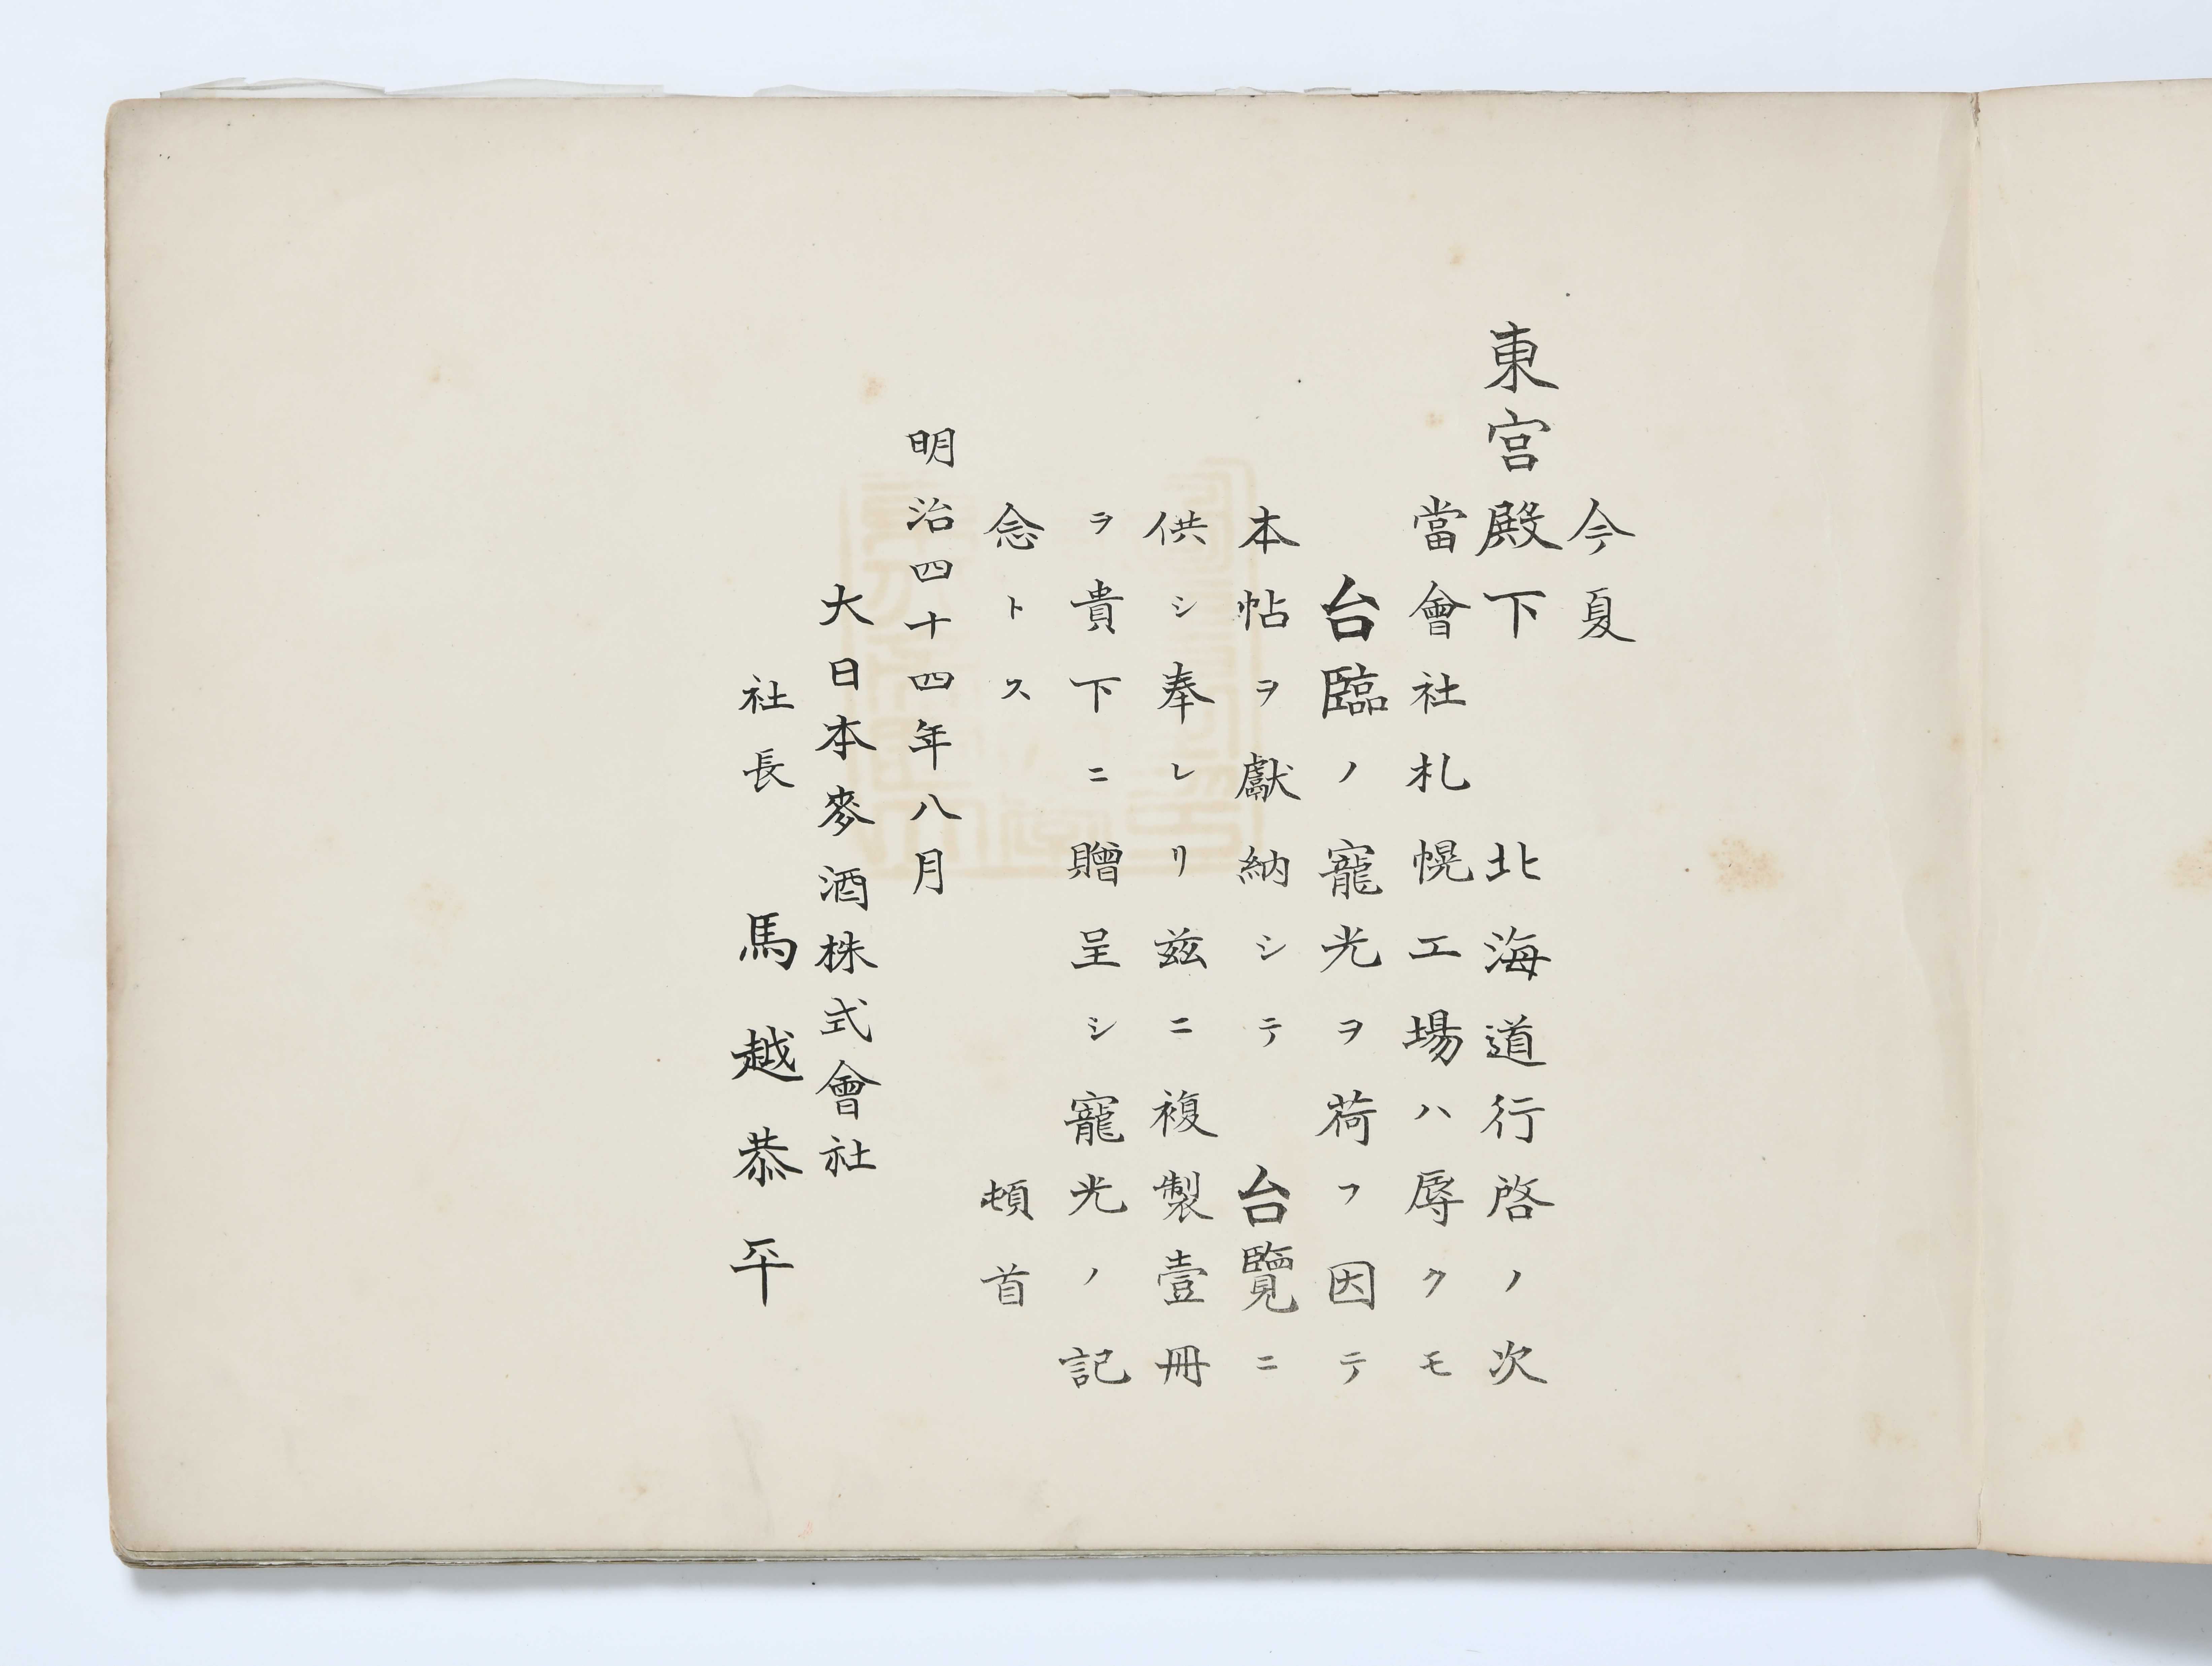 今夏
東宮殿下　北海道行啓ノ次
當會社札幌工場ハ辱クモ
台臨ノ寵光ヲ荷フ因テ
本帖ヲ獻納シテ　台覽ニ
供シ奉レリ茲ニ複製壹冊
ヲ貴下ニ贈呈シ寵光ノ記
念トス　頓首
明治四十四年八月
大日本麥酒株式會社
社長　馬越恭平